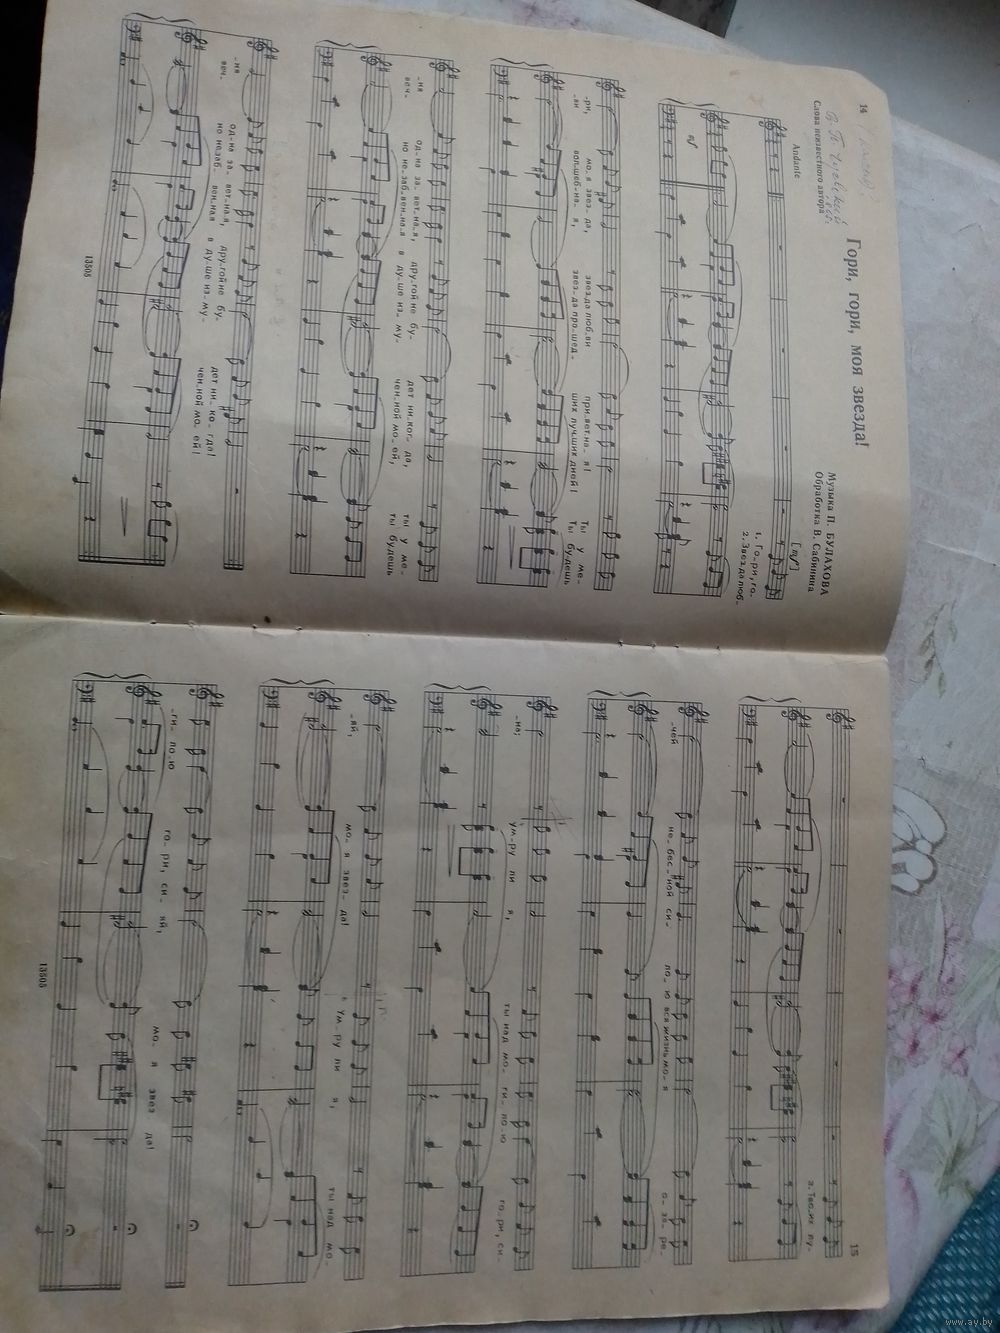 14
В. П. Чуевский
Слова неизвестного автора
Гори, гори, моя звезда!
Музыка П. БУЛАХОВА
Обработка В. Сабинина
Andante
[mf]
1. Го-ри, го-
2. Звез-да люб-
mf
-ри, мо-я звез-да, звез-да люб-ви при-вет-на-я! Ты у ме-
-ви вол-шеб-на-я, звез-да про-шед-ших луч-ших дней! Ты бу-дешь
-ня од-на за-вет-на-я, дру-гой не бу-дет ни-ког-да, ты у ме-
веч-но не-заб-вен-на-я в ду-ше из-му-чен-ной мо-ей, ты бу-дешь
-ня од-на за-вет-на-я, дру-гой не бу-дет ни-ко-гда!
веч-но не-заб-вен-ная в ду-ше из-му-чен-ной мо-ей!
13505
15
3. Тво-их лу-
-чей не-бес-ной си-ло-ю вся жизнь мо-я о-за-ре-
-на; Ум-ру ли я, ты над мо-ги-ло-ю го-ри, си-
-яй, мо-я звез-да! Ум-ру ли я, ты над мо-
-ги-ло-ю го-ри, си-яй, мо-я звез-да!
13505
www.ay.by